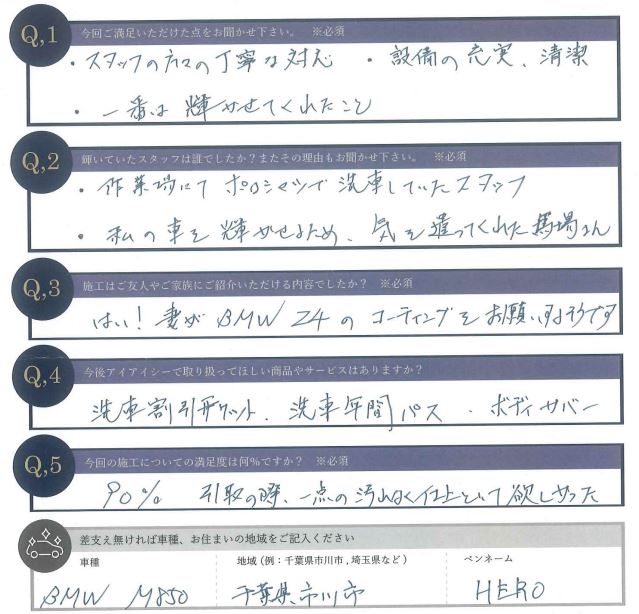 Q,1 今回ご満足いただけた点をお聞かせ下さい。 ※必須
・スタッフの方々の丁寧な対応 ・設備の充実、清潔
・一番は輝かせてくれたこと
Q,2 輝いていたスタッフは誰でしたか?またその理由もお聞かせ下さい。 ※必須
・作業場にてポロシャツで洗車していたスタッフ
・私の車を輝かせるため、気を遣ってくれた馬場さん
Q,3 施工はご友人やご家族にご紹介いただける内容でしたか? ※必須
はい!妻がBMW Z4のコーティングをお願いするそうです
Q,4 今後アイアイシーで取り扱ってほしい商品やサービスはありますか?
洗車割引チケット、洗車年間パス・ボディカバー
Q,5 今回の施工についての満足度は何%ですか? ※必須
90% 引取の際、一点の汚れなく仕上といて欲しかった
差支え無ければ車種、お住まいの地域をご記入ください
車種 地域(例:千葉県市川市,埼玉県など) ペンネーム
BMW M850 千葉県市川市 HERO